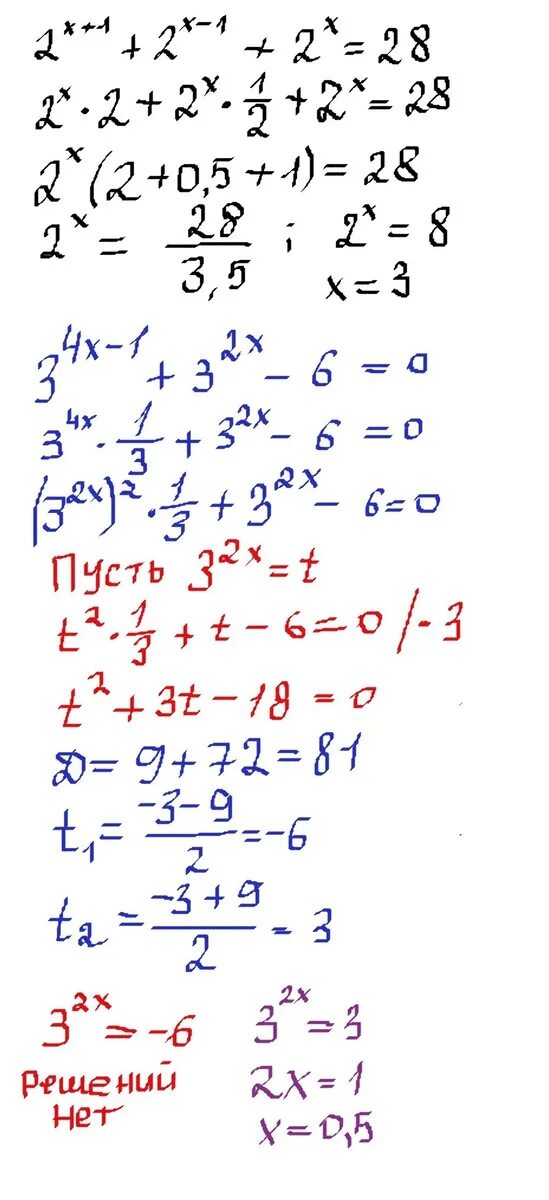 2^(x+1) + 2^(x-1) + 2^x = 28
2^x · 2 + 2^x · 1/2 + 2^x = 28
2^x (2 + 0,5 + 1) = 28
2^x = 28/3,5 ; 2^x = 8
x = 3
3^(4x-1) + 3^(2x) - 6 = 0
3^(4x) · 1/3 + 3^(2x) - 6 = 0
(3^(2x))^2 · 1/3 + 3^(2x) - 6 = 0
Пусть 3^(2x) = t
t^2 · 1/3 + t - 6 = 0 /· 3
t^2 + 3t - 18 = 0
D = 9 + 72 = 81
t₁ = (-3 - 9)/2 = -6
t₂ = (-3 + 9)/2 = 3
3^(2x) = -6
Решений
нет
3^(2x) = 3
2x = 1
x = 0,5